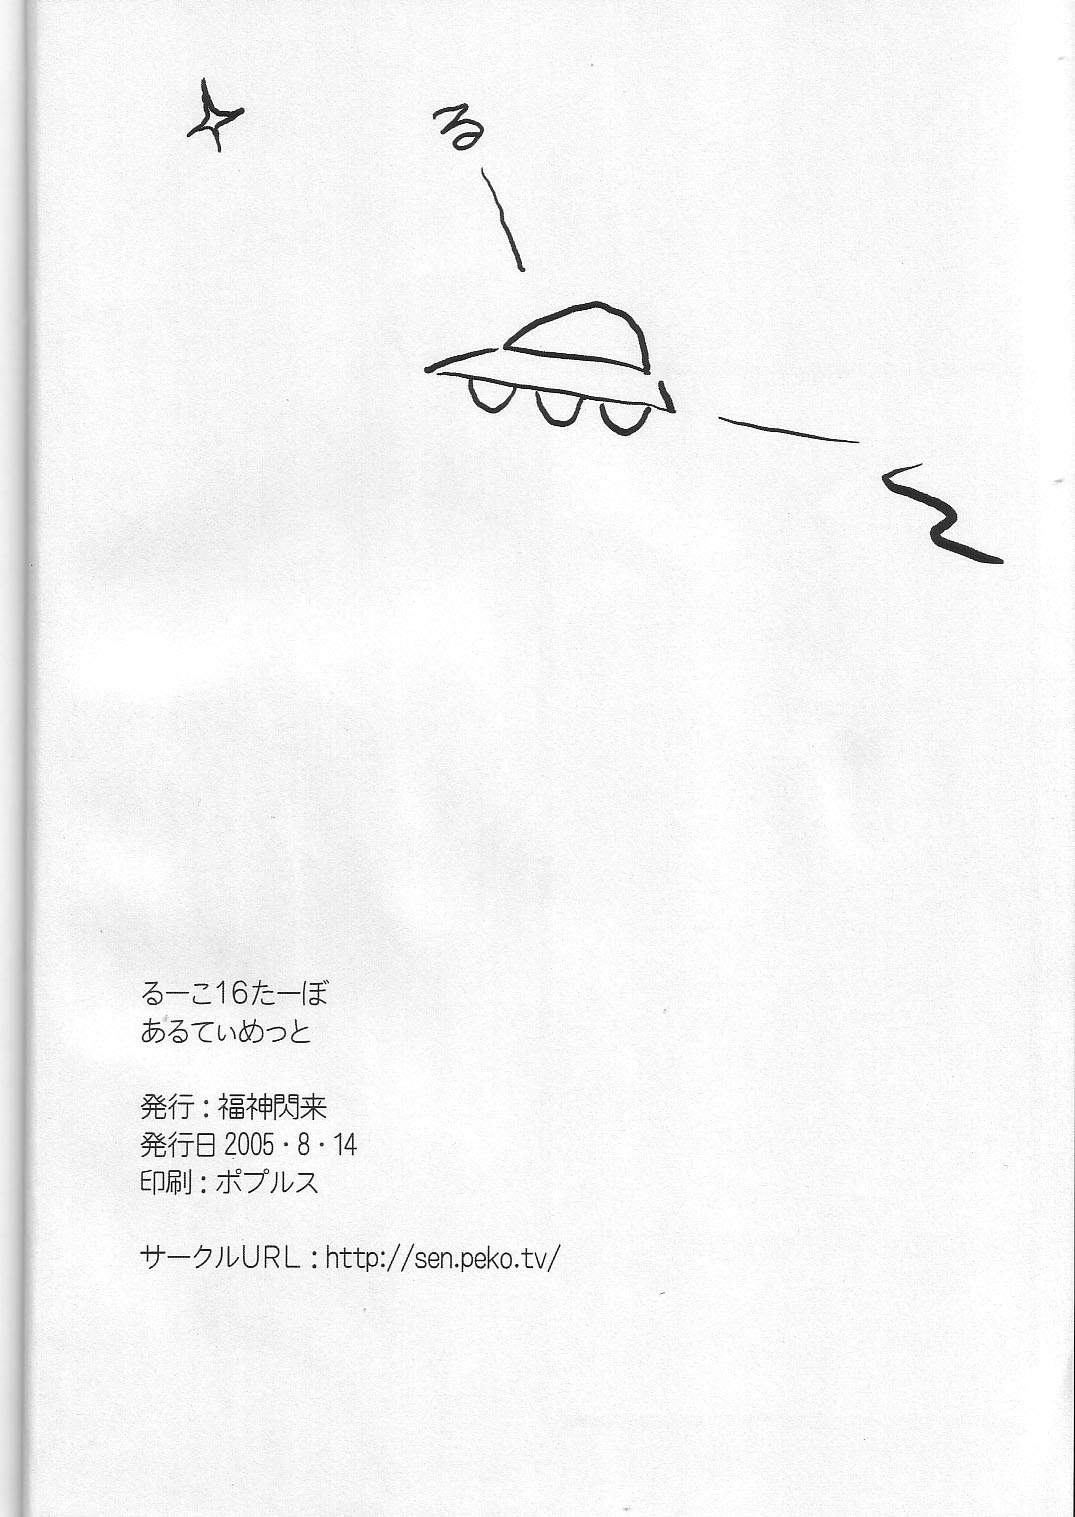 る
るーこ16たーぼ
あるてぃめっと
発行：福神閃来
発行日 2005・8・14
印刷：ポプルス
サークルURL：http://sen.peko.tv/